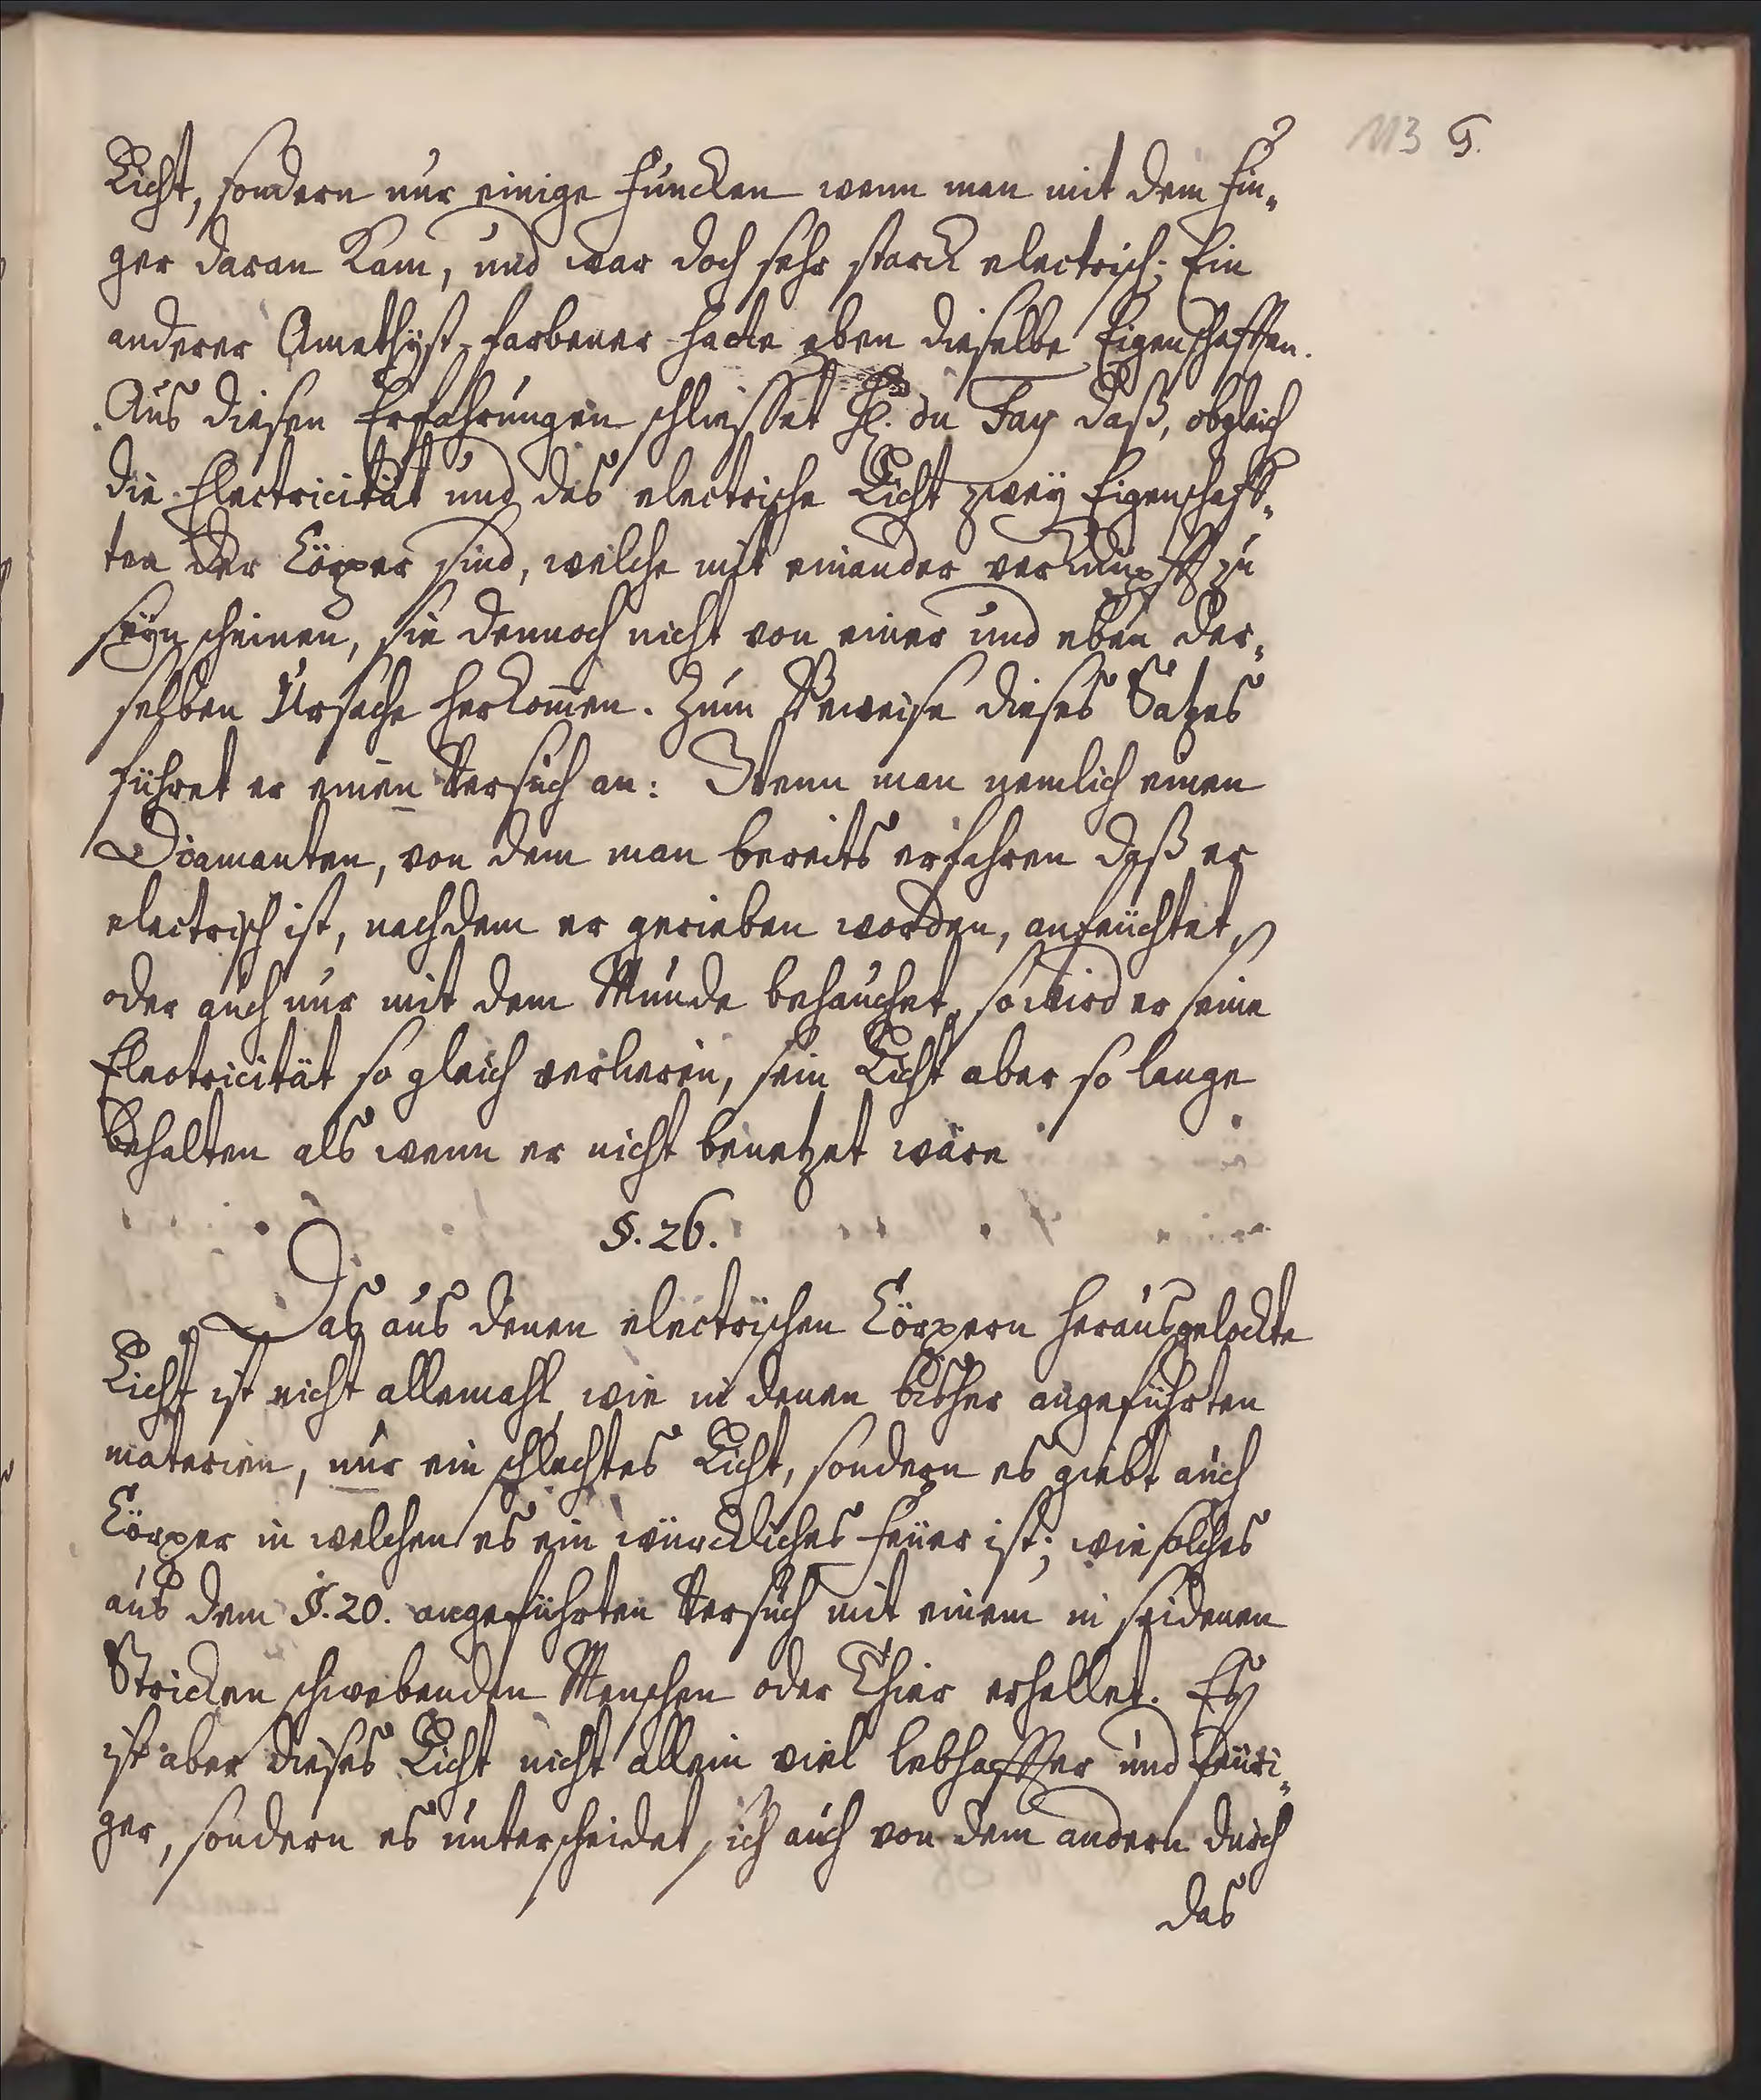 113 G.
Licht, sondern nur einige Funcken wenn man mit dem Fin„
ger daran kam, und war doch sehr starck electrisch; Ein
anderer Amethyst-farbener hatte eben dieselbe Eigenschafften.
Aus diesen Erfahrungen schliesset H. du Fay daß, obgleich
die Electricität und das electrische Licht zwey Eigenschaff„
ten der Cörper sind, welche mit einander verknüpfft zu
seyn scheinen, sie dennoch nicht von einer und eben der„
selben Ursache herkom̄en. Zum Beweise dieses Satzes
führet er einen Versuch an: Wenn man nemlich einen
Diamanten, von dem man bereits erfahren daß er
electrisch ist, nachdem er gerieben worden, anfeüchtet,
oder auch nur mit dem Munde behauchet, so wird er seine
Electricität so gleich verlieren, sein Licht aber so lange
behalten als wenn er nicht benetzet wäre
§. 26.
Das aus denen electrischen Cörpern herausgelockte
Licht ist nicht allemahl, wie in denen bisher angeführten
materien, nur ein schlechtes Licht, sondern es giebt auch
Cörper in welchen es ein würckliches Feüer ist; wie solches
aus dem §. 20. angeführten Versuch mit einem in seidenen
Stricken schwebenden Menschen oder Thier erhellet. Es
ist aber dieses Licht nicht allein viel lebhaffter und feüri„
ger, sondern es unterscheidet sich auch von dem andern durch
das